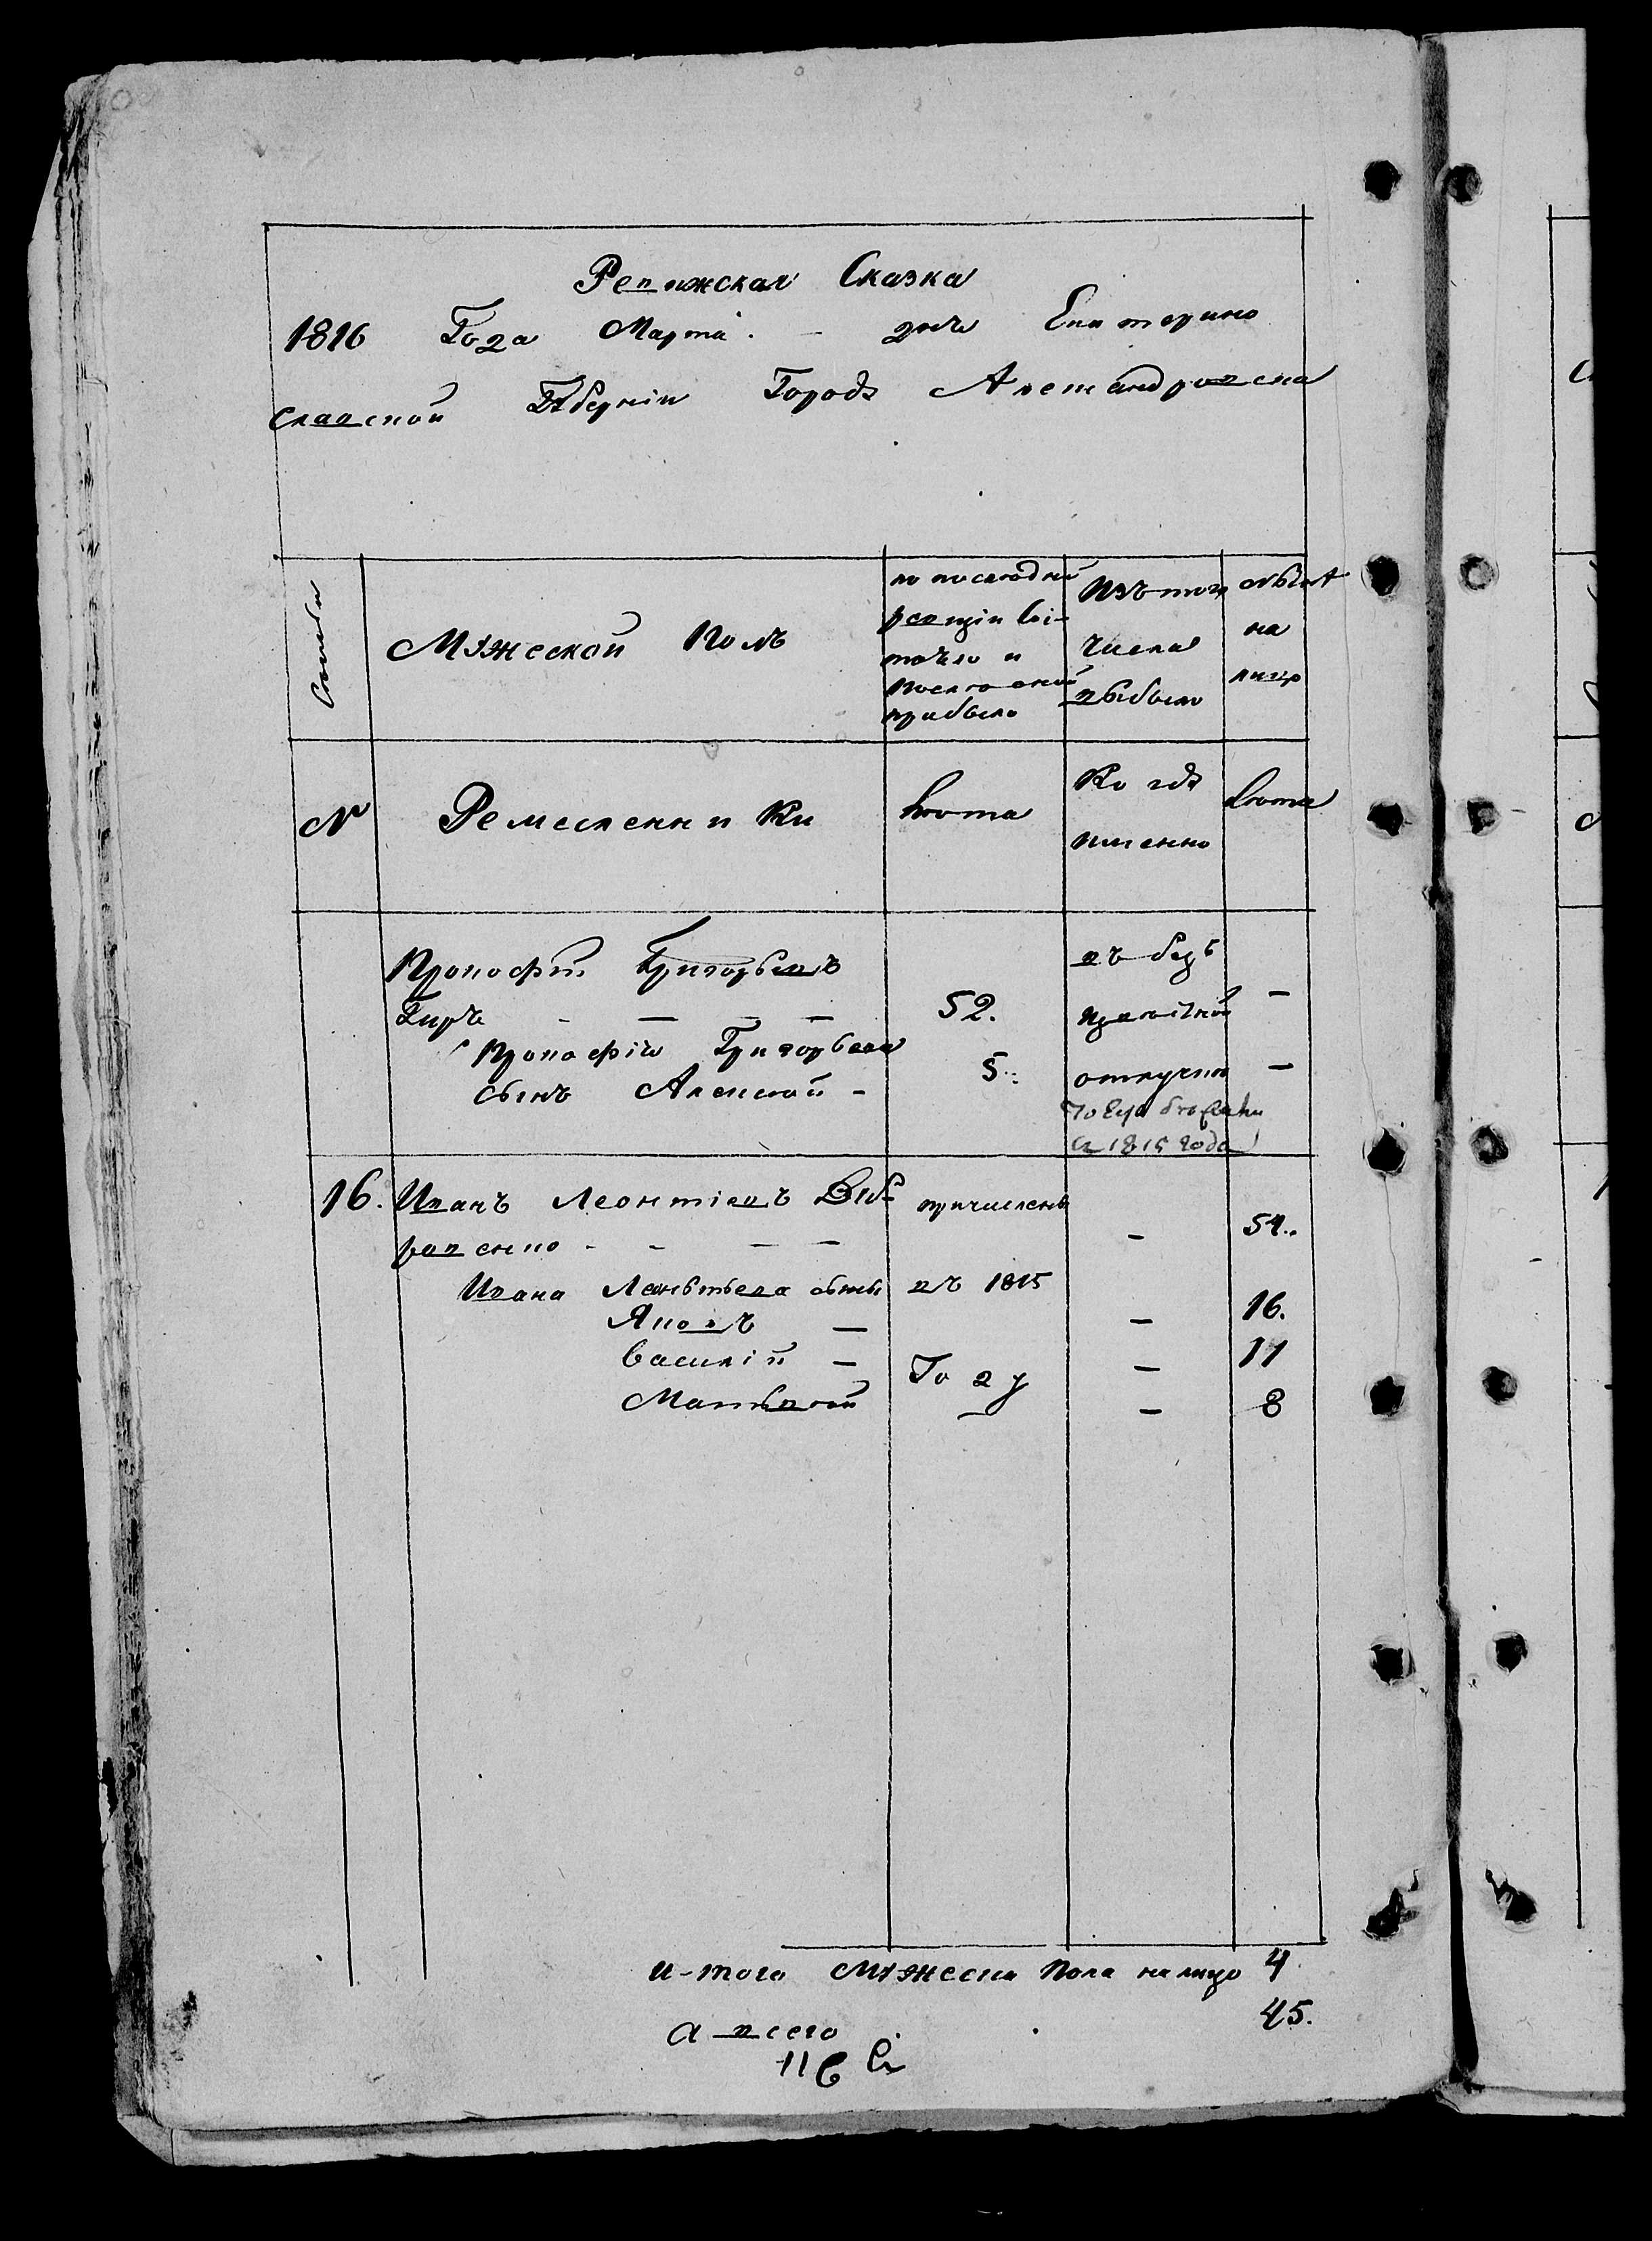 Ревижская Сказка
1816 Года Марта - дня Екатерино
славской Губернiи Города Александровска
Семьи
Мужеской полъ
по последней
ревизiи сос-
тояло и
после оной
прибыло
Изъ того
числа
выбыло
Нынѣ
на
лицо
№
Ремесленники
Лѣта
Когда
именно
Лѣта
Прокофiй Григорьевъ
Гиръ - - - -
52.
въ безъ
-
Прокофiя Григорьева
сынъ Алексѣй -
5.
отлучке
-
1815 года
16. Иванъ Леонтiевъ
ровенко - - - -
причисленъ
-
54.
Ивана Леонтьева сыны
въ 1815
Яковъ -
-
16.
Василiй -
Году
-
11
Матвѣй
-
-
8
и-того Мужеска пола на лицо 4
а всего
45.
116